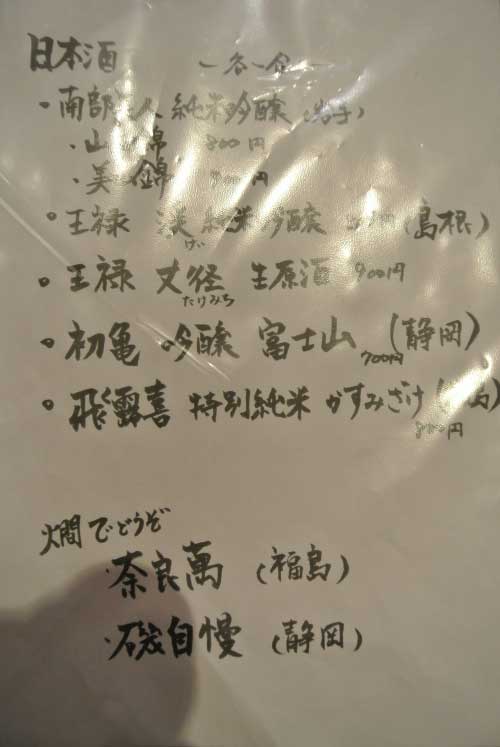 日本酒 ー各一合ー
・南部 人 純米吟醸 (岩手)
・山 錦 800円
・美 錦 円
○王禄 渓 純米吟醸 (島根)
けい
○王禄 丈径 生原酒 900円
たけみち
○初亀 吟醸 富士山 (静岡)
700円
○飛露喜 特別純米 かすみざけ
円
燗でどうぞ
・奈良萬 (福島)
・磯自慢 (静岡)